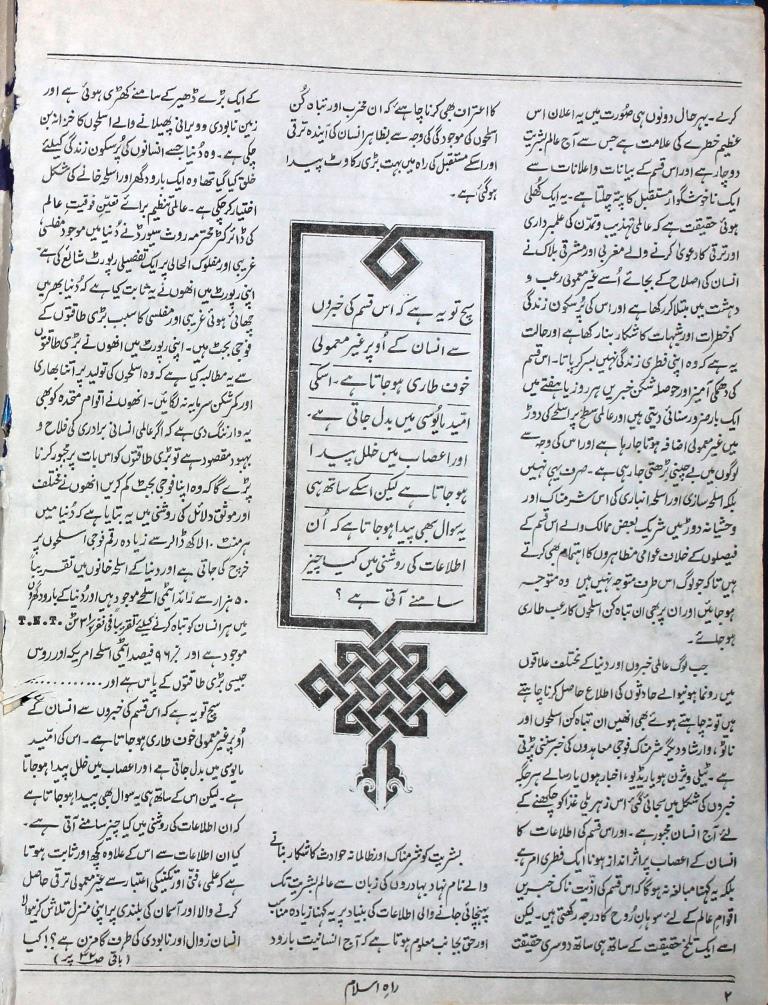 کرلے۔ بہر حال دونوں ہی صورت میں یہ اعلان اس
عظیم خطرے کی علامت ہے جس سے آج عالم بشریت
دوچار ہے اور اس قسم کے بیانات و اعلانات سے
ایک ناخوشگوار مستقبل کا پتہ چلتا ہے۔ یہ ایک کھلی
ہوئی حقیقت ہے کہ عالمی تہذیب و تمدن کی علمبرداری
اور ترقی کا دعویٰ کرنے والے مغربی اور مشرقی بلاک نے
انسان کی اصلاح کے بجائے اُسے غیر معمولی رعب و
دہشت میں مبتلا کر رکھا ہے اور اس کی پُرسکون زندگی
کو خطرات اور شبہات کا شکار بنا رکھا ہے اور حالت
یہ ہے کہ وہ اپنی فطری زندگی نہیں بسر کر پاتا۔ اس قسم
کی دھمکی آمیز اور حوصلہ شکن خبریں ہر روز یا ہفتے میں
ایک بار ضرور سنائی دیتی ہیں اور عالمی سطح پر اسلحے کی دوڑ
میں غیر معمولی اضافہ ہوتا جا رہا ہے اور اس کی وجہ سے
لوگوں میں بے چینی بڑھتی جا رہی ہے۔ صرف یہی نہیں
بلکہ اسلحہ سازی اور اسلحہ انباری کی اس شرمناک اور
وحشیانہ دوڑ میں شریک بعض ممالک والے اس قسم کے
فیصلوں کے خلاف عوامی مظاہروں کا اہتمام بھی کرتے
ہیں تاکہ جو لوگ اس طرف متوجہ نہیں ہیں وہ متوجہ
ہو جائیں اور ان پر بھی ان تباہ کن اسلحوں کا رعب طاری
ہو جائے۔
جب لوگ عالمی خبروں اور دنیا کے مختلف علاقوں
میں رونما ہونیوالے حادثوں کی اطلاع حاصل کرنا چاہتے
ہیں تو نہ چاہتے ہوئے بھی انھیں ان تباہ کن اسلحوں اور
ناٹو، وارشا و دیگر شرمناک فوجی معاہدوں کی خبر سننی پڑتی
ہے۔ ٹیلی ویژن ہو یا ریڈیو، اخبار ہوں یا رسالے ہر جگہ
خبروں کی شکل میں سجائی گئی اس زہریلی غذا کو چکھنے کے
لئے آج انسان مجبور ہے۔ اور اس قسم کی اطلاعات کا
انسان کے اعصاب پر اثر انداز ہونا ایک فطری امر ہے
بلکہ یہ کہنا مبالغہ نہ ہوگا کہ اس قسم کی اذیت ناک خبریں
اقوام عالم کے لئے سوہان روح کا درجہ رکھتی ہیں۔ لیکن
اسے ایک تلخ حقیقت کے ساتھ ہی ساتھ دوسری حقیقت
کا اعتراف بھی کرنا چاہئے کہ ان مخرب اور تباہ کُن
اسلحوں کی موجودگی کی وجہ سے بظاہر انسان کی آیندہ ترقی
اور اسکے مستقبل کی راہ میں بہت بڑی رکاوٹ پیدا
ہو گئی ہے۔
سچ تو یہ ہے کہ اس قسم کی خبروں
سے انسان کے اُوپر غیر معمولی
خوف طاری ہو جاتا ہے۔ اسکی
امّید مایوسی میں بدل جاتی ہے۔
اور اعصاب میں خلل پیدا
ہو جاتا ہے لیکن اسکے ساتھ ہی
یہ سوال بھی پیدا ہو جاتا ہے کہ اُن
اطلاعات کی روشنی میں کیا چیز
سامنے آتی ہے؟
بشریت کو شرمناک اور ظالمانہ حوادث کا شکار بنانے
والے نام نہاد بہادروں کی زبان سے عالم بشریت تک
پہنچائی جانے والی اطلاعات کی بنیاد پر یہ کہنا زیادہ مناسب
اور حق بجانب معلوم ہوتا ہے کہ آج انسانیت بارود
کے ایک بڑے ڈھیر کے سامنے کھڑی ہوئی ہے اور
زمین نابودی و ویرانی پھیلانے والے اسلحوں کا خزانہ بن
چکی ہے۔ وہ دُنیا جسے انسانوں کی پُرسکون زندگی کیلئے
خلق کیا گیا تھا وہ ایک بارود گھر اور اسلحہ خانے کی شکل
اختیار کر چکی ہے۔ عالمی تنظیم برائے تعیین فوقیتِ عالم
کی ڈائرکٹر محترمہ روث سیورڈ نے دُنیا میں موجود مفلسی
غریبی اور مفلوک الحالی پر ایک تفصیلی رپورٹ شائع کی ہے
اپنی رپورٹ میں انھوں نے یہ ثابت کیا ہے کہ دُنیا بھر میں
چھائی ہوئی غریبی اور مفلسی کا سبب بڑی طاقتوں کے
فوجی بجٹ ہیں۔ اپنی رپورٹ میں انھوں نے بڑی طاقتوں
سے یہ مطالبہ کیا ہے کہ وہ اسلحوں کی تولید پر اتنا بھاری
اور کمرشکن سرمایہ نہ لگائیں۔ انھوں نے اقوام متحدہ کو بھی
یہ وارننگ دی ہے کہ اگر عالمی انسانی برادری کی فلاح و
بہبود مقصود ہے تو بڑی طاقتوں کو اس بات پر مجبور کرنا
پڑے گا کہ وہ اپنا فوجی بجٹ کم کریں انھوں نے مختلف
اور موثق دلائل کی روشنی میں یہ بتایا ہے کہ دُنیا میں
ہر منٹ ۱۰ لاکھ ڈالر سے زیادہ رقم فوجی اسلحوں پر
خرچ کی جاتی ہے اور دنیا کے اسلحہ خانوں میں تقریباً
۵۰ ہزار سے زائد ایٹمی اسلحے موجود ہیں اور دُنیا کے بارود گھروں
میں ہر انسان کو تباہ کرنے کیلئے تقریباً فی نفر ٹن T.N.T.
موجود ہے اور ۹۶ فیصد ایٹمی اسلحے امریکہ اور روس
جیسی بڑی طاقتوں کے پاس ہے اور ............
سچ تو یہ ہے کہ اس قسم کی خبروں سے انسان کے
اُوپر غیر معمولی خوف طاری ہو جاتا ہے۔ اس کی امّید
مایوسی میں بدل جاتی ہے اور اعصاب میں خلل پیدا ہو جاتا
ہے۔ لیکن اس کے ساتھ ہی یہ سوال بھی پیدا ہو جاتا ہے
کہ ان اطلاعات کی روشنی میں کیا چیز سامنے آتی ہے۔
کیا ان اطلاعات سے اس کے علاوہ کچھ اور ثابت ہوتا
ہے کہ علمی، فنّی اور تکنیکی اعتبار سے غیر معمولی ترقی حاصل
کرنے والا اور آسمان کی بلندی پر اپنی منزل تلاش کرنیوالا
انسان زوال اور نابودی کی طرف گامزن ہے؟! کیا
(باقی صـ ۳۲ پر)
راہِ اسلام
۲